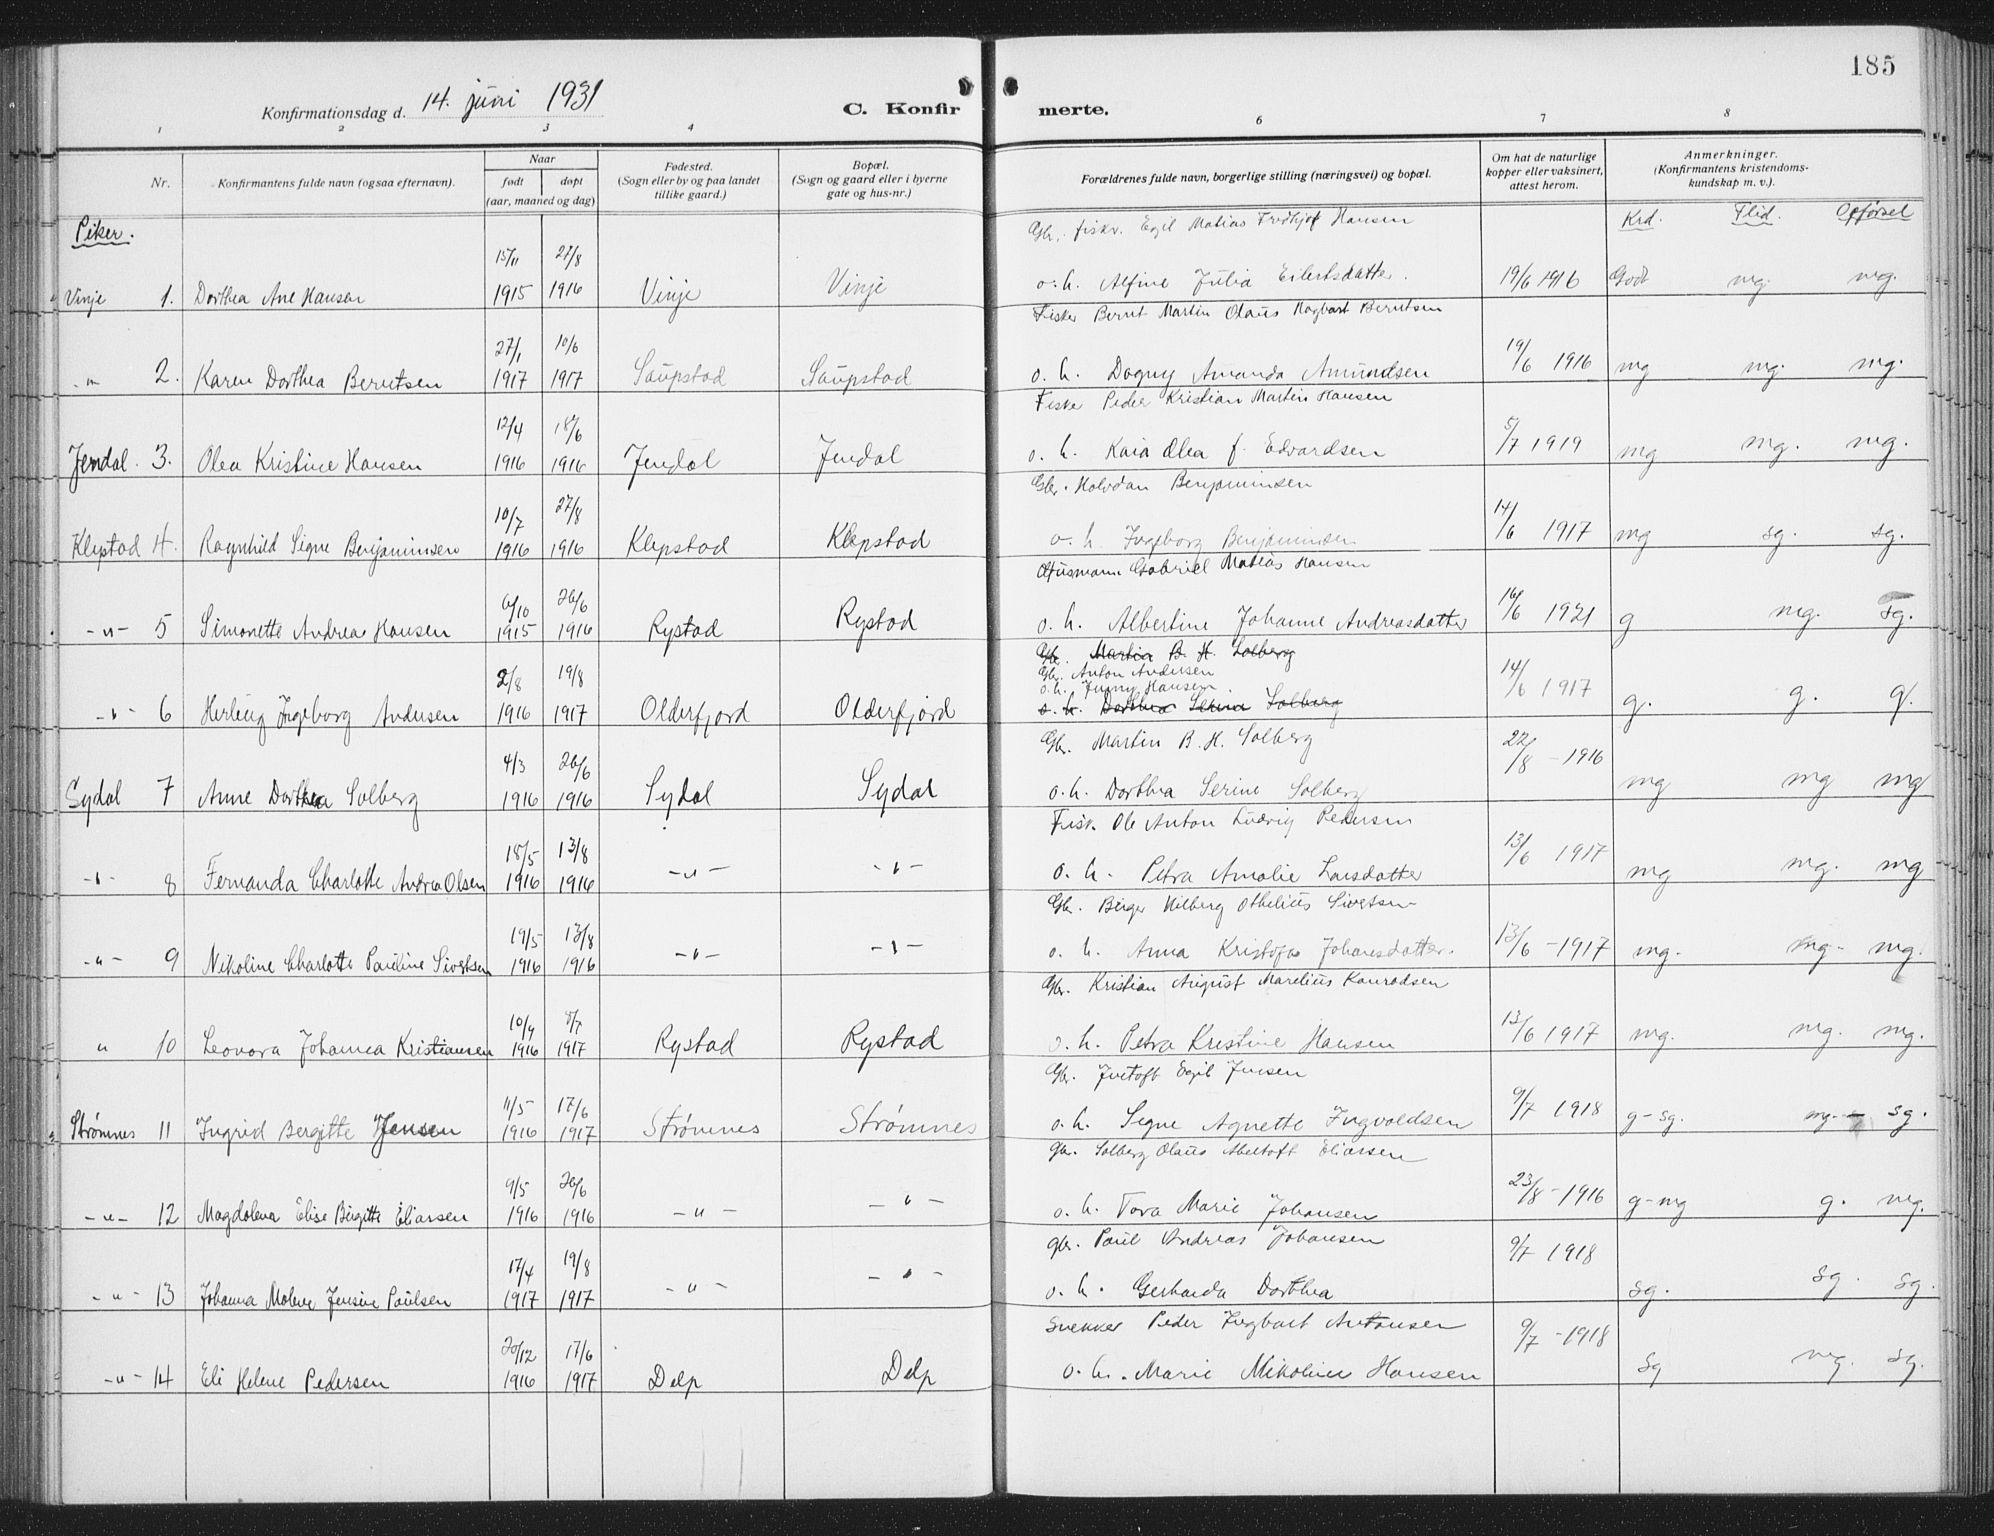 185
Konfirmationsdag d. 14. juni 1931
C. Konfirmerte.
1 2 3 4 6 7 8
Nr. Konfirmantens fulde navn (ogsaa efternavn).
Naar
født døpt
(aar, maaned og dag)
Fødested.
(Sogn eller by og paa landet
tillike gaard.)
Bopæl.
(Sogn og gaard eller i byerne
gate og hus-nr.)
Forældrenes fulde navn, borgerlige stilling (næringsvei) og bopæl.
Om hat de naturlige
kopper eller vaksinert,
attest herom.
Anmerkninger.
(Konfirmantens kristendoms-
kundskap m. v.).
Piker.
Krd. Flid. Opførsel
Gbr. fiskr. Egil Matias Hansen
15/11 27/8
Vinje 1. Dorthea Ane Hansen 1915 1916 Vinje Vinje o. h. Alfine Julia Eilertsdatter. 19/6 1916 Godt mg. mg.
Fisker Bernt Martin Olaus Hagbart Berntsen
27/1 10/6
-"- 2. Karen Dorthea Berntsen 1917 1917 Saupstad Saupstad o. h. Dagny Amanda Amundsen 19/6 1916 mg mg. mg.
Fisker Peder Kristian Martin Hansen
12/4 18/6
Jendal. 3. Olea Kristine Hansen 1916 1916 Jendal Jendal o. h. Kaia Olea f. Edvardsen 5/7 1919 mg mg. mg.
Gbr. Halvdan Benjaminsen
10/7 27/8
Klepstad 4. Ragnhild Signe Benjaminsen 1916 1916 Klepstad Klepstad o. h. Ingeborg Benjaminsen 14/6 1917 mg sg. sg.
Husmann Gabriel Matias Hansen
6/10 26/6
-"- 5 Simonette Andrea Hansen 1915 1916 Rystad Rystad o. h. Albertine Johanne Andreasdatter 16/6 1921 g mg. sg.
Gbr. Martin B. H. Solberg
Gbr. Anton Andersen
o. h. Hansen.
2/8 19/8
-"- 6 Ingeborg Andersen 1916 1917 Olderfjord Olderfjord o. h. Dorthea Serine Solberg 14/6 1917 g. g. g.
Gbr. Martin B. H. Solberg
4/3 26/6
Sydal 7 Anne Dorthea Solberg 1916 1916 Sydal Sydal o. h. Dorthea Serine Solberg 22/8 - 1916 mg mg mg
Fisk. Ole Anton Ludvig Pedersen
18/5 13/8
-"- 8 Fernanda Charlotte Andrea Olsen 1916 1916 -"- -"- o. h. Petra Amalie Larsdatter 13/6 1917 mg mg. mg
Gbr. Birger Hilberg Othelius Sivertsen
19/5 13/8
-"- 9 Nikoline Charlotte Pauline Sivertsen 1916 1916 -"- -"- o. h. Anna Johansdatter. 13/6 - 1917 mg. mg. mg.
Gbr. Kristian August Marelius Konradsen
10/9 8/7
" 10 Leonora Johannea Kristiansen 1916 1917 Rystad Rystad o. h. Petra Kristine Hansen 13/6 1917 mg. mg. mg.
Gbr. Egil Jensen
11/5 17/6
Strømnes 11 Ingrid Bergitte Jensen 1916 1917 Strømnes Strømnes o. h. Signe Agnette Ingvaldsen 9/7 1918 g-sg. mg. - sg.
Gbr. Solberg Olaus Abeltoft Eliassen
9/5 26/6
-"- 12 Magdalena Elise Birgitte Eliassen 1916 1916 -"- -"- o. h. Tora Marie Johansen 23/8 - 1916 g-mg g. mg.
gbr. Paul Andreas Johansen
17/4 19/8
-"- 13 Johanna Malene Jensine Paulsen 1917 1917 -"- -"- o. h. Gerharda Dorthea 9/7 1918 sg. sg. sg.
Snekker Peder Ingbart Antonsen
20/12 17/6
-"- 14 Eli Helene Pedersen 1916 1917 Delp Delp o. h. Marie Nikoline Hansen 9/7 - 1918 sg mg. sg.